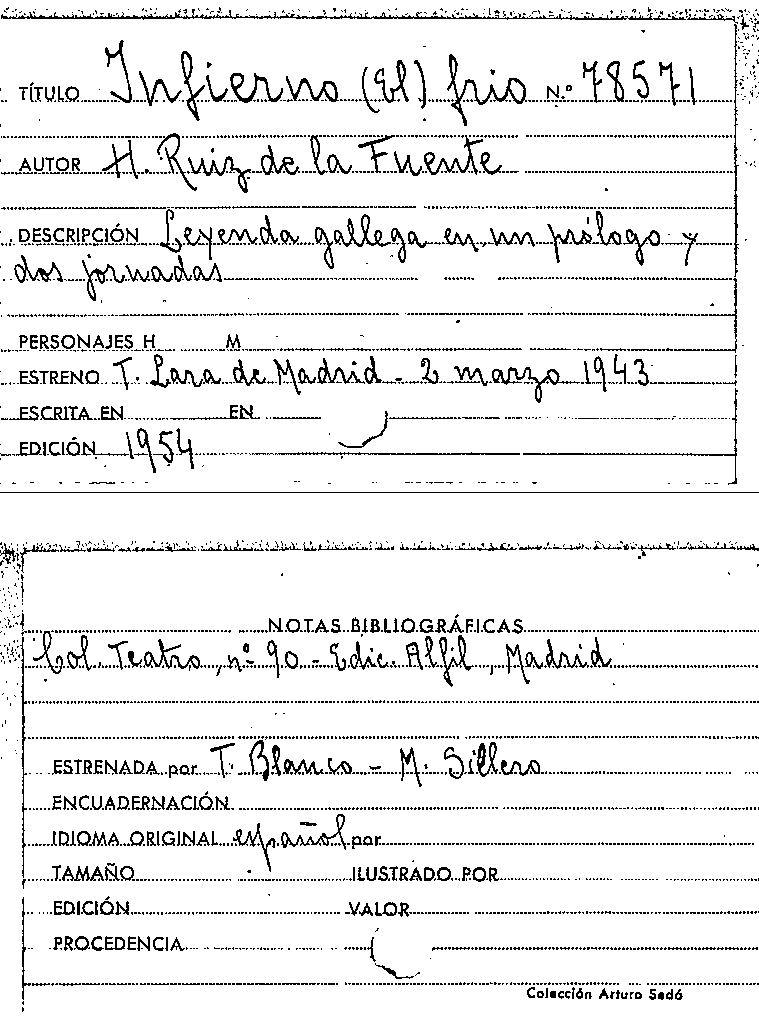 TÍTULO Infierno (El) frio N.º 78571
AUTOR H. Ruiz de la Fuente
DESCRIPCIÓN Leyenda gallega en un prólogo y
dos jornadas
PERSONAJES H M
ESTRENO T. Lara de Madrid - 2 marzo 1943
ESCRITA EN EN
EDICIÓN 1954
NOTAS BIBLIOGRÁFICAS
Col. Teatro, nº 90 - Edic. Alfil, Madrid
ESTRENADA por T. Blanco - M. Sillero
ENCUADERNACIÓN
IDIOMA ORIGINAL español por
TAMAÑO ILUSTRADO POR
EDICIÓN VALOR
PROCEDENCIA
Colección Arturo Sedó